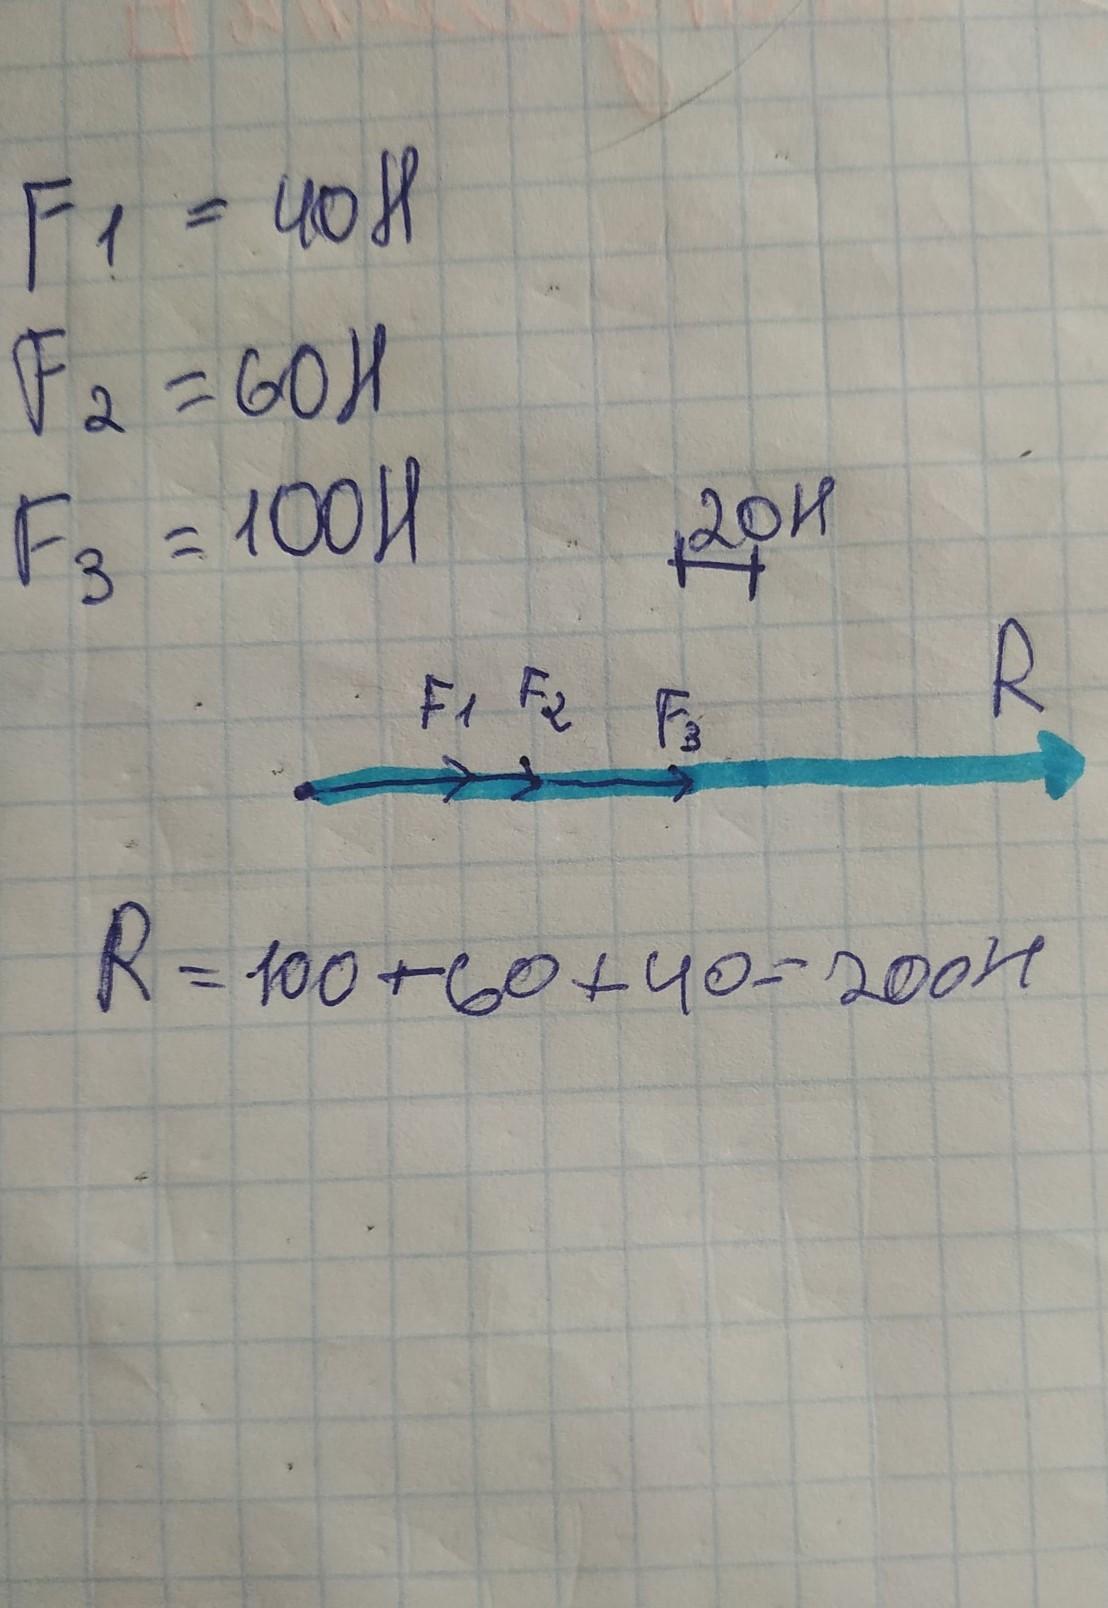 F1 = 40H
F2 = 60H
F3 = 100H
20H
F1 F2 F3 R
R = 100 + 60 + 40 = 200H